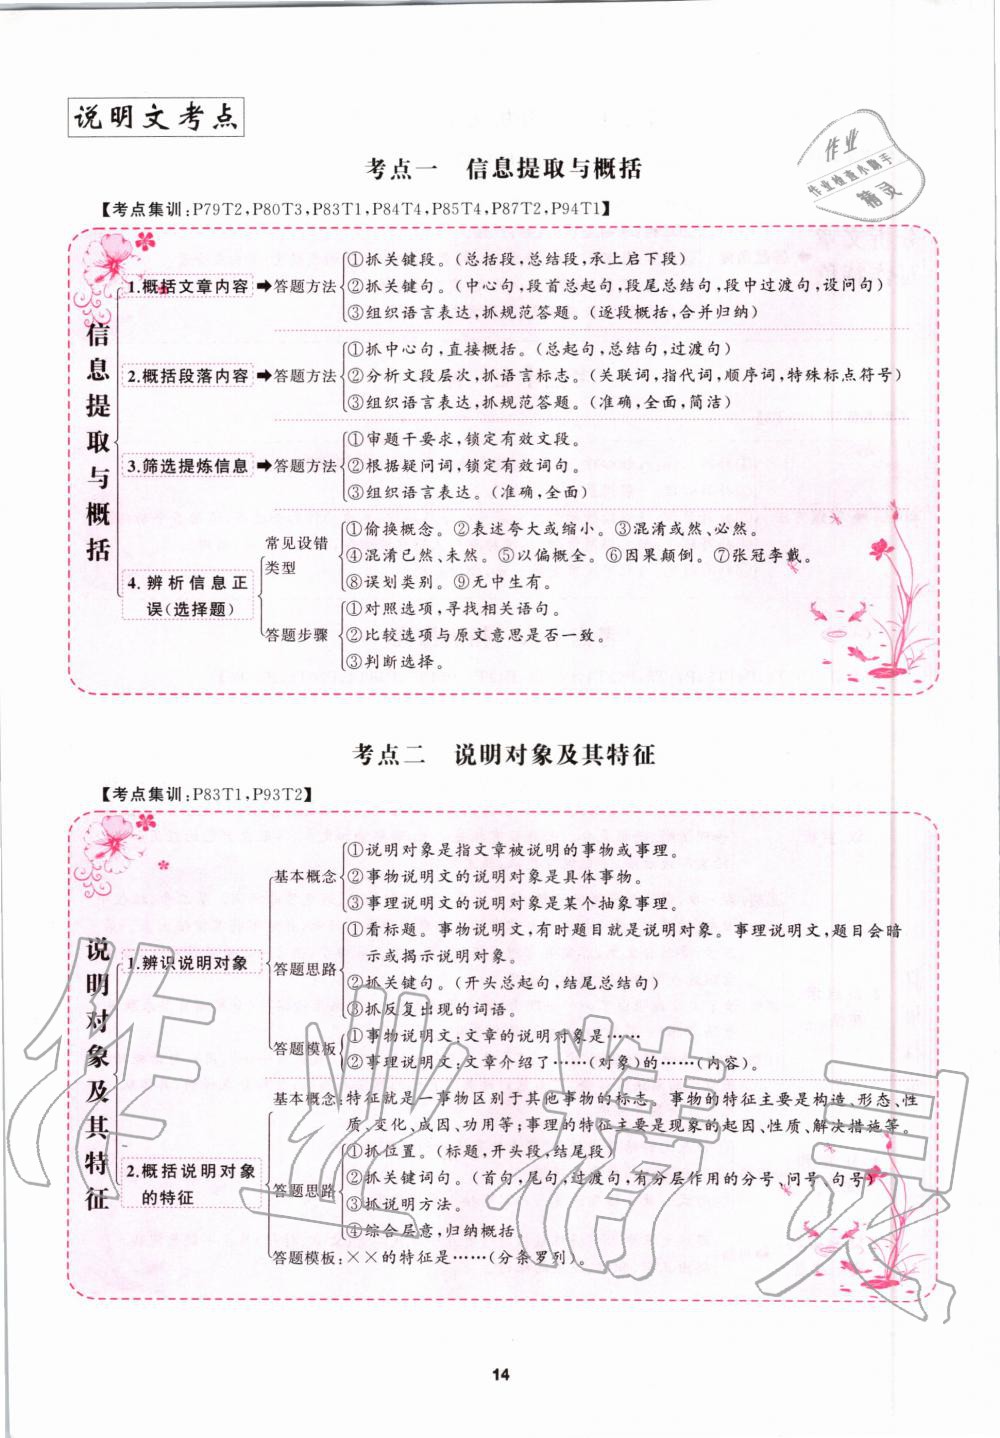 说明文考点
作业
作业检查小助手
精灵
考点一 信息提取与概括
【考点集训:P79T2,P80T3,P83T1,P84T4,P85T4,P87T2,P94T1】
信息提取与概括
1.概括文章内容➡答题方法
①抓关键段。(总括段,总结段,承上启下段)
②抓关键句。(中心句,段首总起句,段尾总结句,段中过渡句,设问句)
③组织语言表达,抓规范答题。(逐段概括,合并归纳)
2.概括段落内容➡答题方法
①抓中心句,直接概括。(总起句,总结句,过渡句)
②分析文段层次,抓语言标志。(关联词,指代词,顺序词,特殊标点符号)
③组织语言表达,抓规范答题。(准确,全面,简洁)
3.筛选提炼信息➡答题方法
①审题干要求,锁定有效文段。
②根据疑问词,锁定有效词句。
③组织语言表达。(准确,全面)
4.辨析信息正
误(选择题)
常见设错
类型
①偷换概念。②表述夸大或缩小。③混淆或然、必然。
④混淆已然、未然。⑤以偏概全。⑥因果颠倒。⑦张冠李戴。
⑧误划类别。⑨无中生有。
答题步骤
①对照选项,寻找相关语句。
②比较选项与原文意思是否一致。
③判断选择。
考点二 说明对象及其特征
【考点集训:P83T1,P93T2】
说明对象及其特征
1.辨识说明对象
基本概念
①说明对象是指文章被说明的事物或事理。
②事物说明文的说明对象是具体事物。
③事理说明文的说明对象是某个抽象事理。
答题思路
①看标题。事物说明文,有时题目就是说明对象。事理说明文,题目会暗
示或揭示说明对象。
②抓关键句。(开头总起句,结尾总结句)
③抓反复出现的词语。
答题模板
①事物说明文:文章的说明对象是……
②事理说明文:文章介绍了……(对象)的……(内容)。
2.概括说明对象
的特征
基本概念:特征就是一事物区别于其他事物的标志。事物的特征主要是构造、形态、性
质、变化、成因、功用等;事理的特征主要是现象的起因、性质、解决措施等。
答题思路
①抓位置。(标题,开头段,结尾段)
②抓关键词句。(首句,尾句,过渡句,有分层作用的分号、问号、句号)
③抓说明方法。
④综合层意,归纳概括
答题模板:××的特征是……(分条罗列)。
作业精灵
14